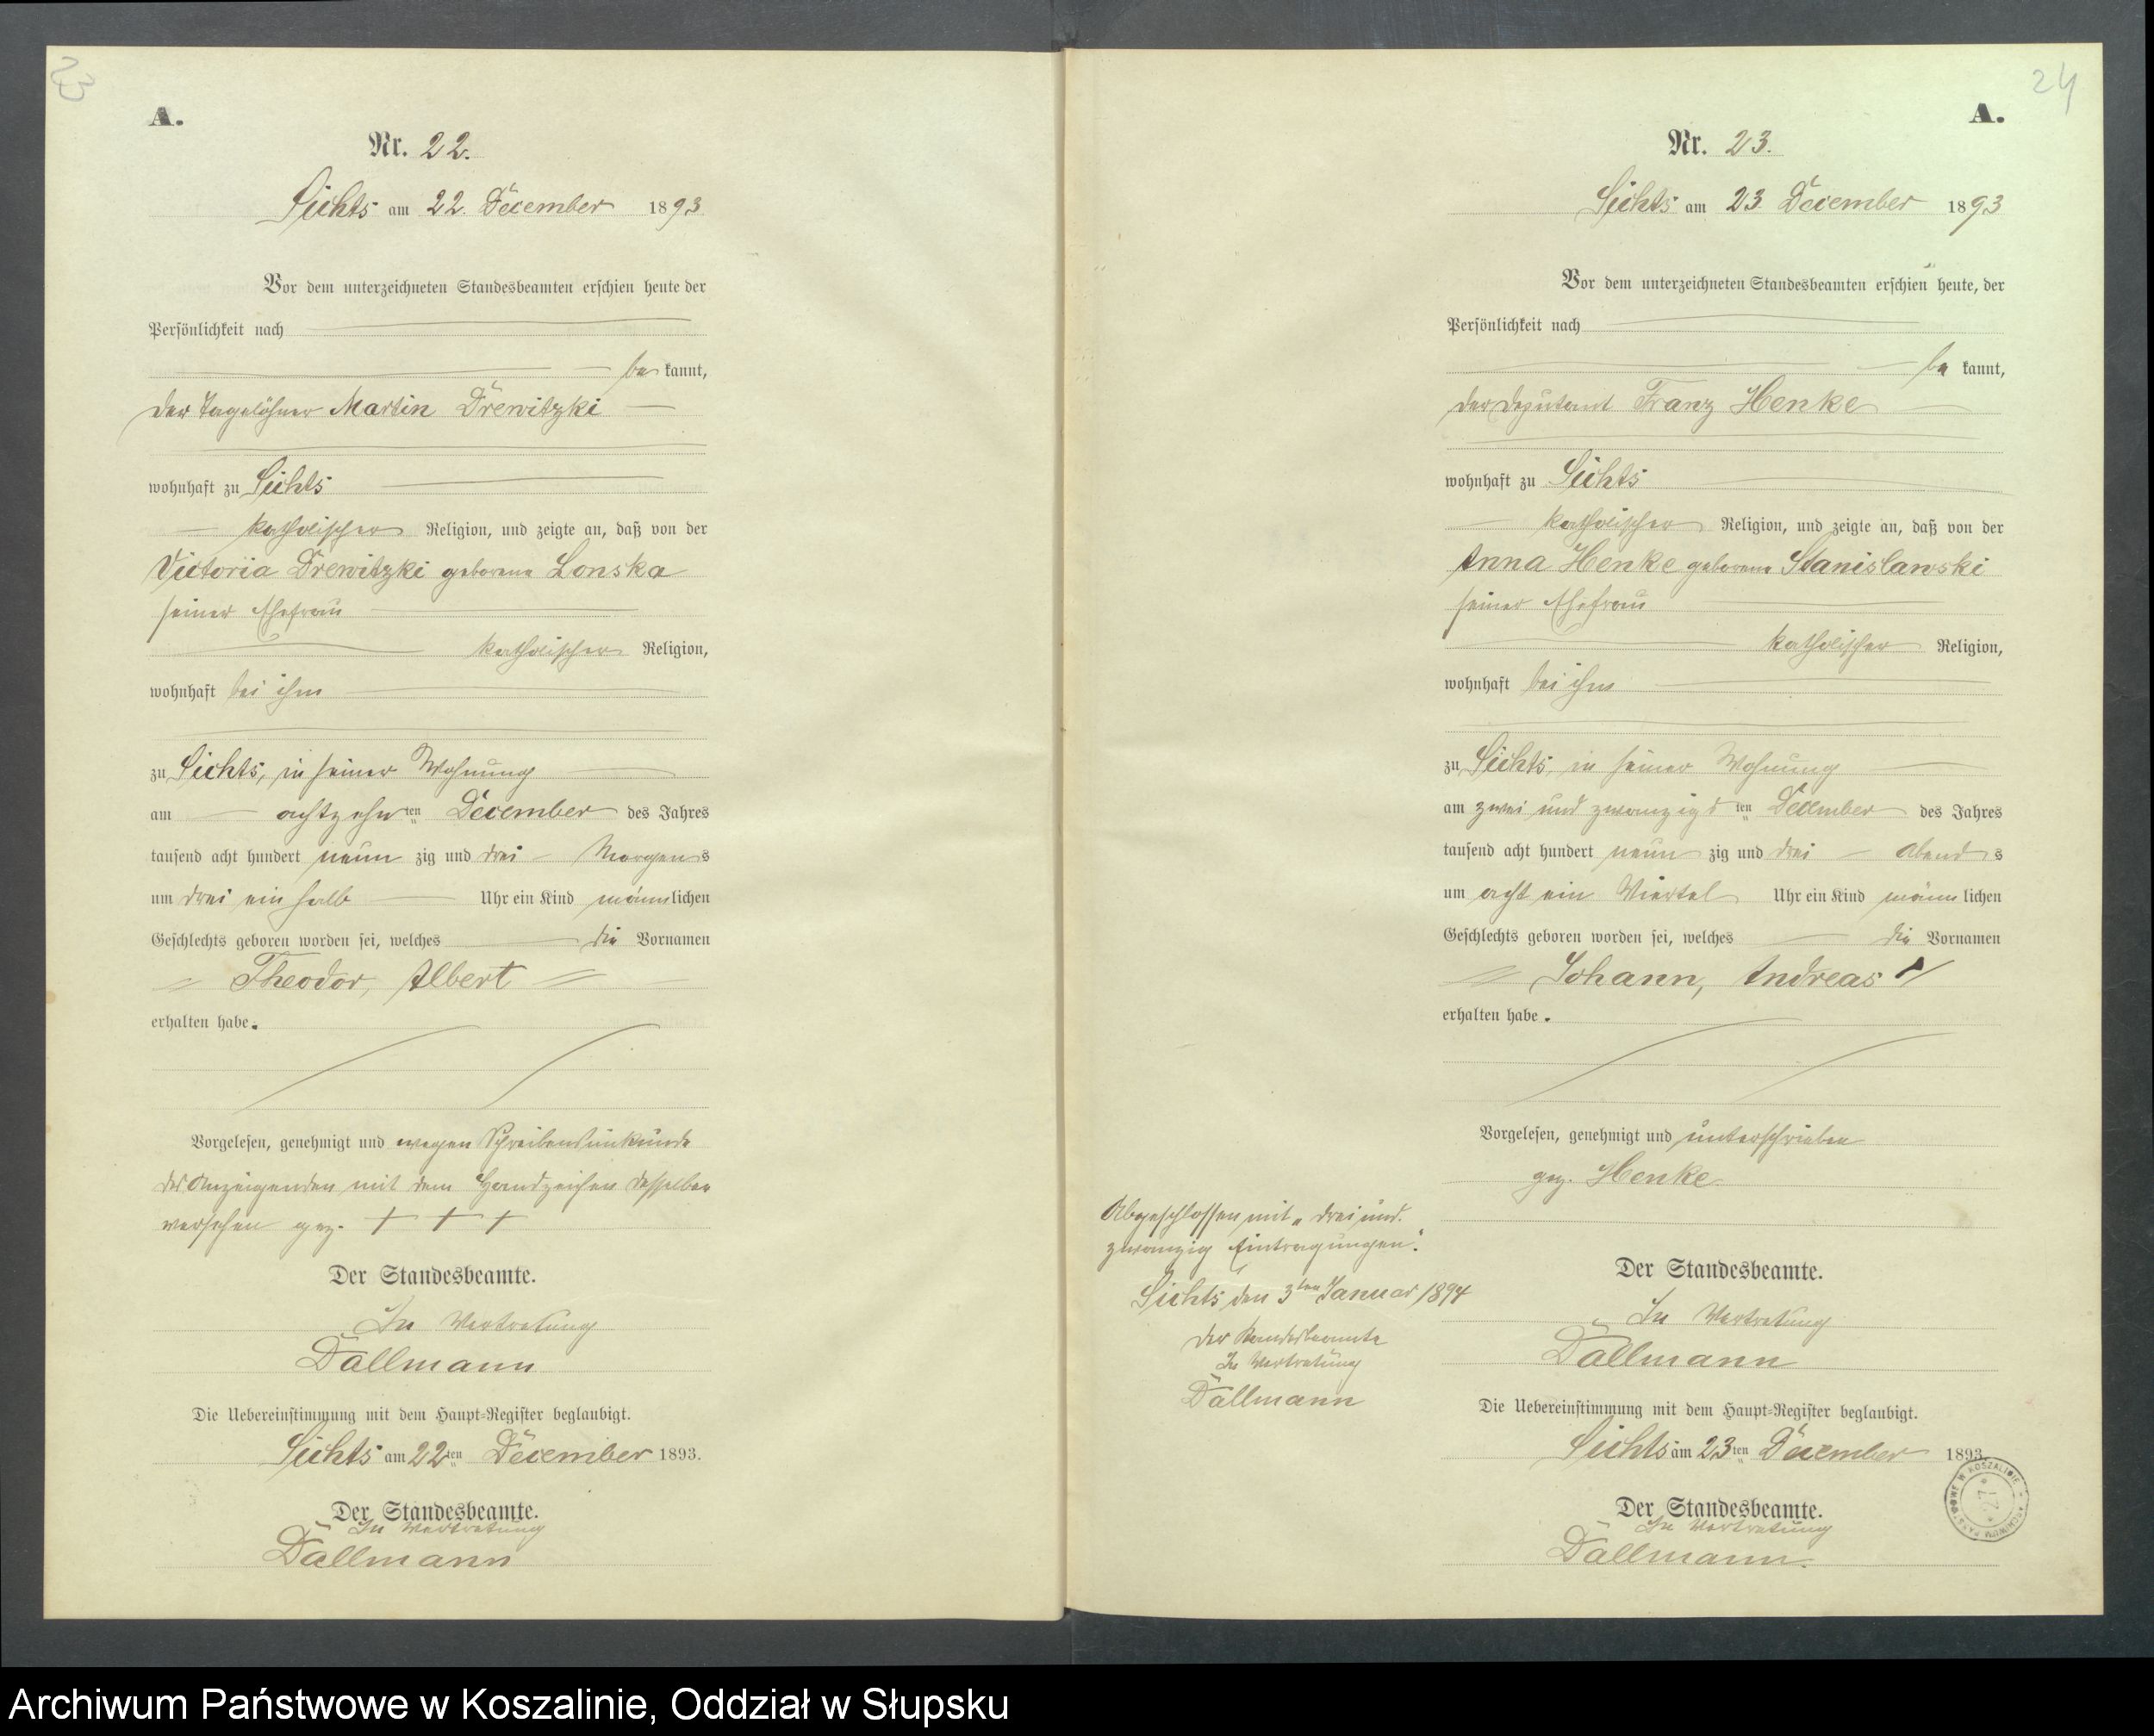 23
A.
Nr. 22.
Lichts am 22. December 1893
Vor dem unterzeichneten Standesbeamten erschien heute der
Persönlichkeit nach
be kannt,
der Tagelöhner Martin Drewitzki
wohnhaft zu Sichts
katholischer Religion, und zeigte an, daß von der
Victoria Drewitzki geborene Lonska
seiner Ehefrau
katholischer Religion,
wohnhaft bei ihm
zu Sichts, in seiner Wohnung
am achtzehn ten December des Jahres
tausend acht hundert neun zig und drei Morgens
um drei ein halb Uhr ein Kind männlichen
Geschlechts geboren worden sei, welches die Vornamen
Theodor, Albert
erhalten habe.
Vorgelesen, genehmigt und wegen Schreibensunkunde
des Anzeigenden mit dem Handzeichen desselben
versehen gez. + + +
Der Standesbeamte.
In Vertretung
Dallmann
Die Uebereinstimmung mit dem Haupt-Register beglaubigt.
Sichts am 22ten December 1893.
Der Standesbeamte.
In Vertretung
Dallmann
24
A.
Nr. 23.
Sichts am 23 December 1893
Vor dem unterzeichneten Standesbeamten erschien heute, der
Persönlichkeit nach
be kannt,
der Deputant Franz Henke
wohnhaft zu Sichts
katholischer Religion, und zeigte an, daß von der
Anna Henke geborene Stanislawski
seiner Ehefrau
katholischer Religion,
wohnhaft bei ihm
zu Sichts, in seiner Wohnung
am zwei und zwanzigsten December des Jahres
tausend acht hundert neun zig und drei Abends
um acht ein Viertel Uhr ein Kind männlichen
Geschlechts geboren worden sei, welches die Vornamen
Johann, Andreas
erhalten habe.
Vorgelesen, genehmigt und unterschrieben
gez. Henke
Der Standesbeamte.
In Vertretung
Dallmann
Die Uebereinstimmung mit dem Haupt-Register beglaubigt.
Sichts am 23ten December 1893.
Der Standesbeamte.
In Vertretung
Dallmann.
Abgeschlossen mit "drei und
zwanzig Eintragungen".
Sichts den 3ten Januar 1894
Der Standesbeamte
In Vertretung
Dallmann
ARCHIWUM PAŃSTWOWE W KOSZALINIE
27
Archiwum Państwowe w Koszalinie, Oddział w Słupsku